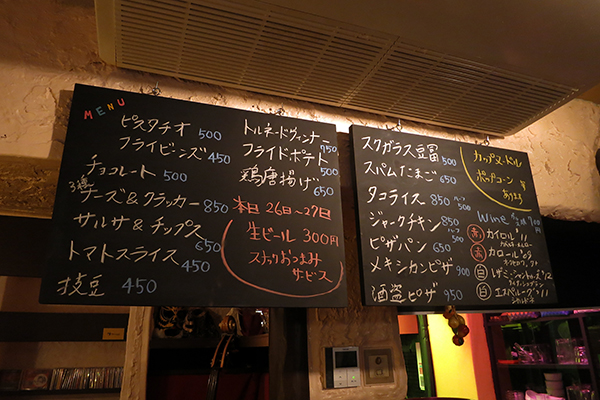 MENU
ピスタチオ 500
フライビーンズ 450
チョコレート 500
3種
チーズ&クラッカー 850
サルサ&チップス 650
トマトスライス 450
枝豆 450
トルネードウィンナー 950
フライドポテト 500
鶏唐揚げ 650
本日26日~27日
生ビール 300円
スナックおつまみ
サービス
スクガラス豆冨 500
スパムたまご 650
タコライス 850 ハーフ 500
ジャークチキン 850 ハーフ 500
ピザパン 650
メキシカンピザ 900
酒盗ピザ 950
カップヌードル
ポップコーン
あります
Wine
赤 カイロール
赤 カロール
白
白